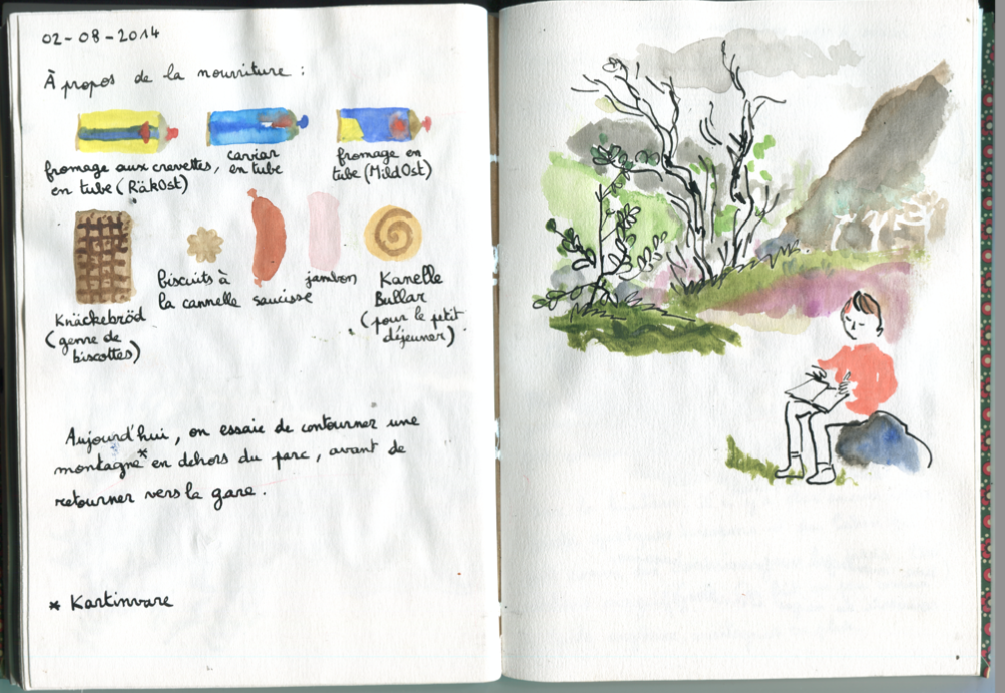 02-08-2014
À propos de la nourriture :
fromage aux crevettes,
en tube (RäkOst)
caviar
en tube
fromage en
tube (MildOst)
Knäckebröd
(genre de
biscottes)
biscuits à
la cannelle
saucisse
jambon
Kanelle
Bullar
(pour le petit
déjeuner)
Aujourd'hui, on essaie de contourner une
montagne* en dehors du parc, avant de
retourner vers la gare.
* Kartinvare